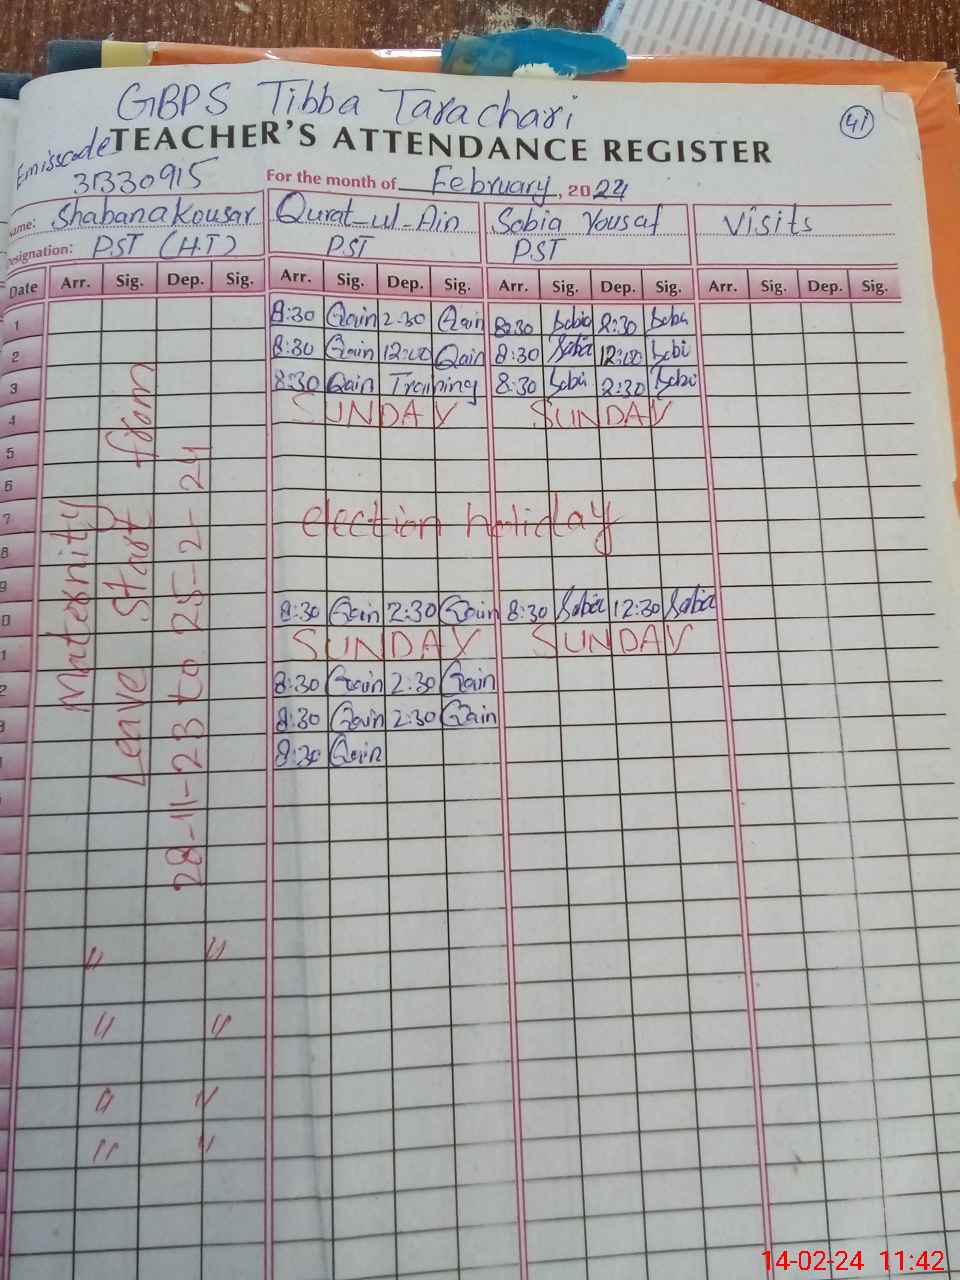 GBPS Tibba Tarachari
41
TEACHER'S ATTENDANCE REGISTER
Emiscode
31330915
For the month of February, 2024
ame: Shabana Kousar Qurat-ul-Ain Sobia Yousaf Visits
esignation: PST (H.T) PST PST
Date Arr. Sig. Dep. Sig. Arr. Sig. Dep. Sig. Arr. Sig. Dep. Sig. Arr. Sig. Dep. Sig.
1 8:30 Qain 2:30 Qain 8:30 Sobia 2:30 Sobia
2 8:30 Qain 12:00 Qain 8:30 Sobia 12:00 Sobi
3 8:30 Qain Training 8:30 Sobi 2:30 Sobi
4 SUNDAY SUNDAY
5
6
7 election holiday
8
9
0 8:30 Qain 2:30 Qain 8:30 Sobia 12:30 Sobia
1 SUNDAY SUNDAY
2 8:30 Qain 2:30 Qain
3 8:30 Qain 2:30 Qain
8:30 Qain
Maternity
Leave Start from
28-11-23 to 25-2-24
" "
" "
" "
" "
14-02-24 11:42